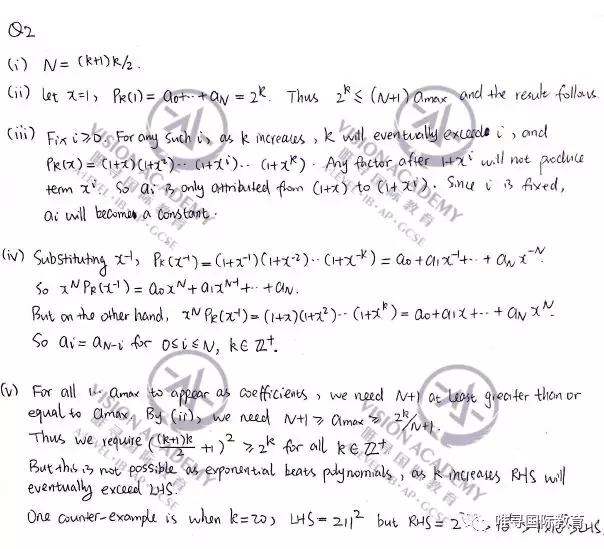 Q2
(i) N = (k+1)k/2.
(ii) Let x=1, Pk(1) = a0+...+aN = 2^k. Thus 2^k ≤ (N+1) amax and the result follows.
(iii) Fix i≥0. For any such i, as k increases, k will eventually exceeds i, and
Pk(x) = (1+x)(1+x^2)...(1+x^i)...(1+x^k). Any factor after 1+x^i will not produce
term x^i. So ai is only attributed from (1+x) to (1+x^i). Since i is fixed,
ai will becomes a constant.
(iv) Substituting x^-1, Pk(x^-1) = (1+x^-1)(1+x^-2)...(1+x^-k) = a0+a1x^-1+...+aN x^-N.
So x^N Pk(x^-1) = a0x^N+a1x^N-1+...+aN.
But on the other hand, x^N Pk(x^-1) = (1+x)(1+x^2)...(1+x^k) = a0+a1x+...+aN x^N.
So ai = aN-i for 0≤i≤N, k∈Z+.
(v) For all 1... amax to appear as coefficients, we need N+1 at least greater than or
equal to amax. By (ii), we need N+1 ≥ amax ≥ 2^k/N+1.
Thus we require ((k+1)k/2 +1)^2 ≥ 2^k for all k∈Z+
But this is not possible as exponential beats polynomials, as k increases RHS will
eventually exceed LHS.
One counter-example is when k=20, LHS = 211^2 but RHS = 2
VISION ACADEMY
唯寻国际教育
ALEVEL·IB·AP·GCSE
VISION ACADEMY
唯寻国际教育
ALEVEL·IB·AP·GCSE
唯寻国际教育